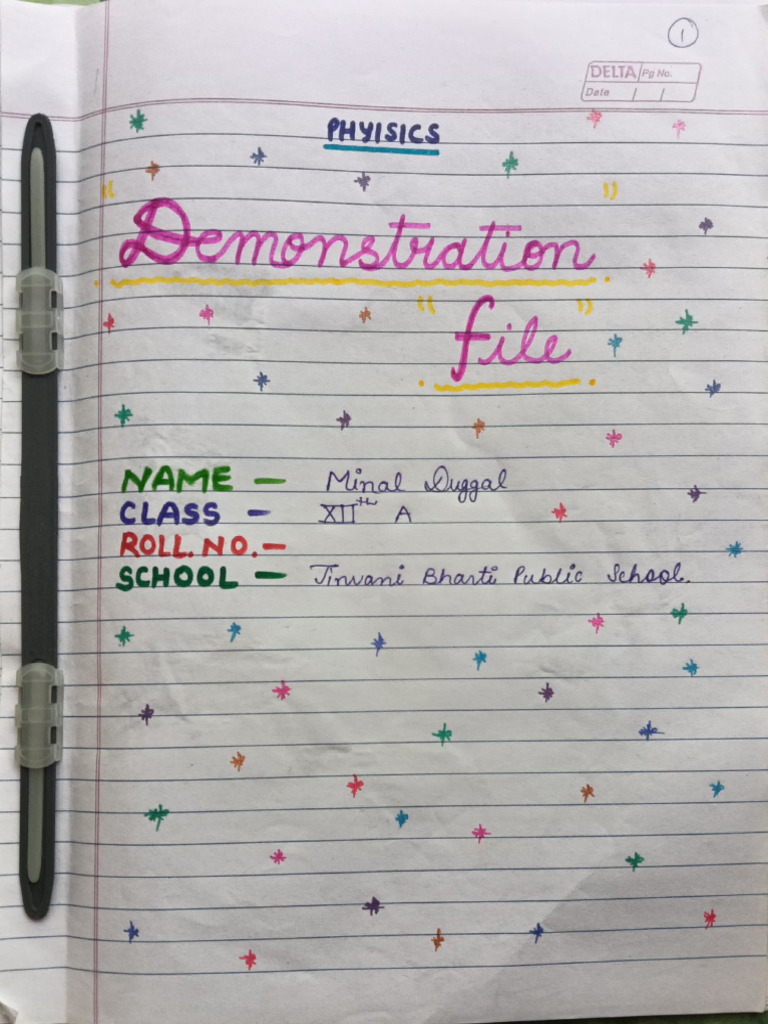 1
DELTA Pg No.
Date / /
PHYISICS
"Demonstration"
"file"
NAME — Minal Duggal
CLASS — XIIth A
ROLL. NO. —
SCHOOL — Jinvani Bharti Public School.